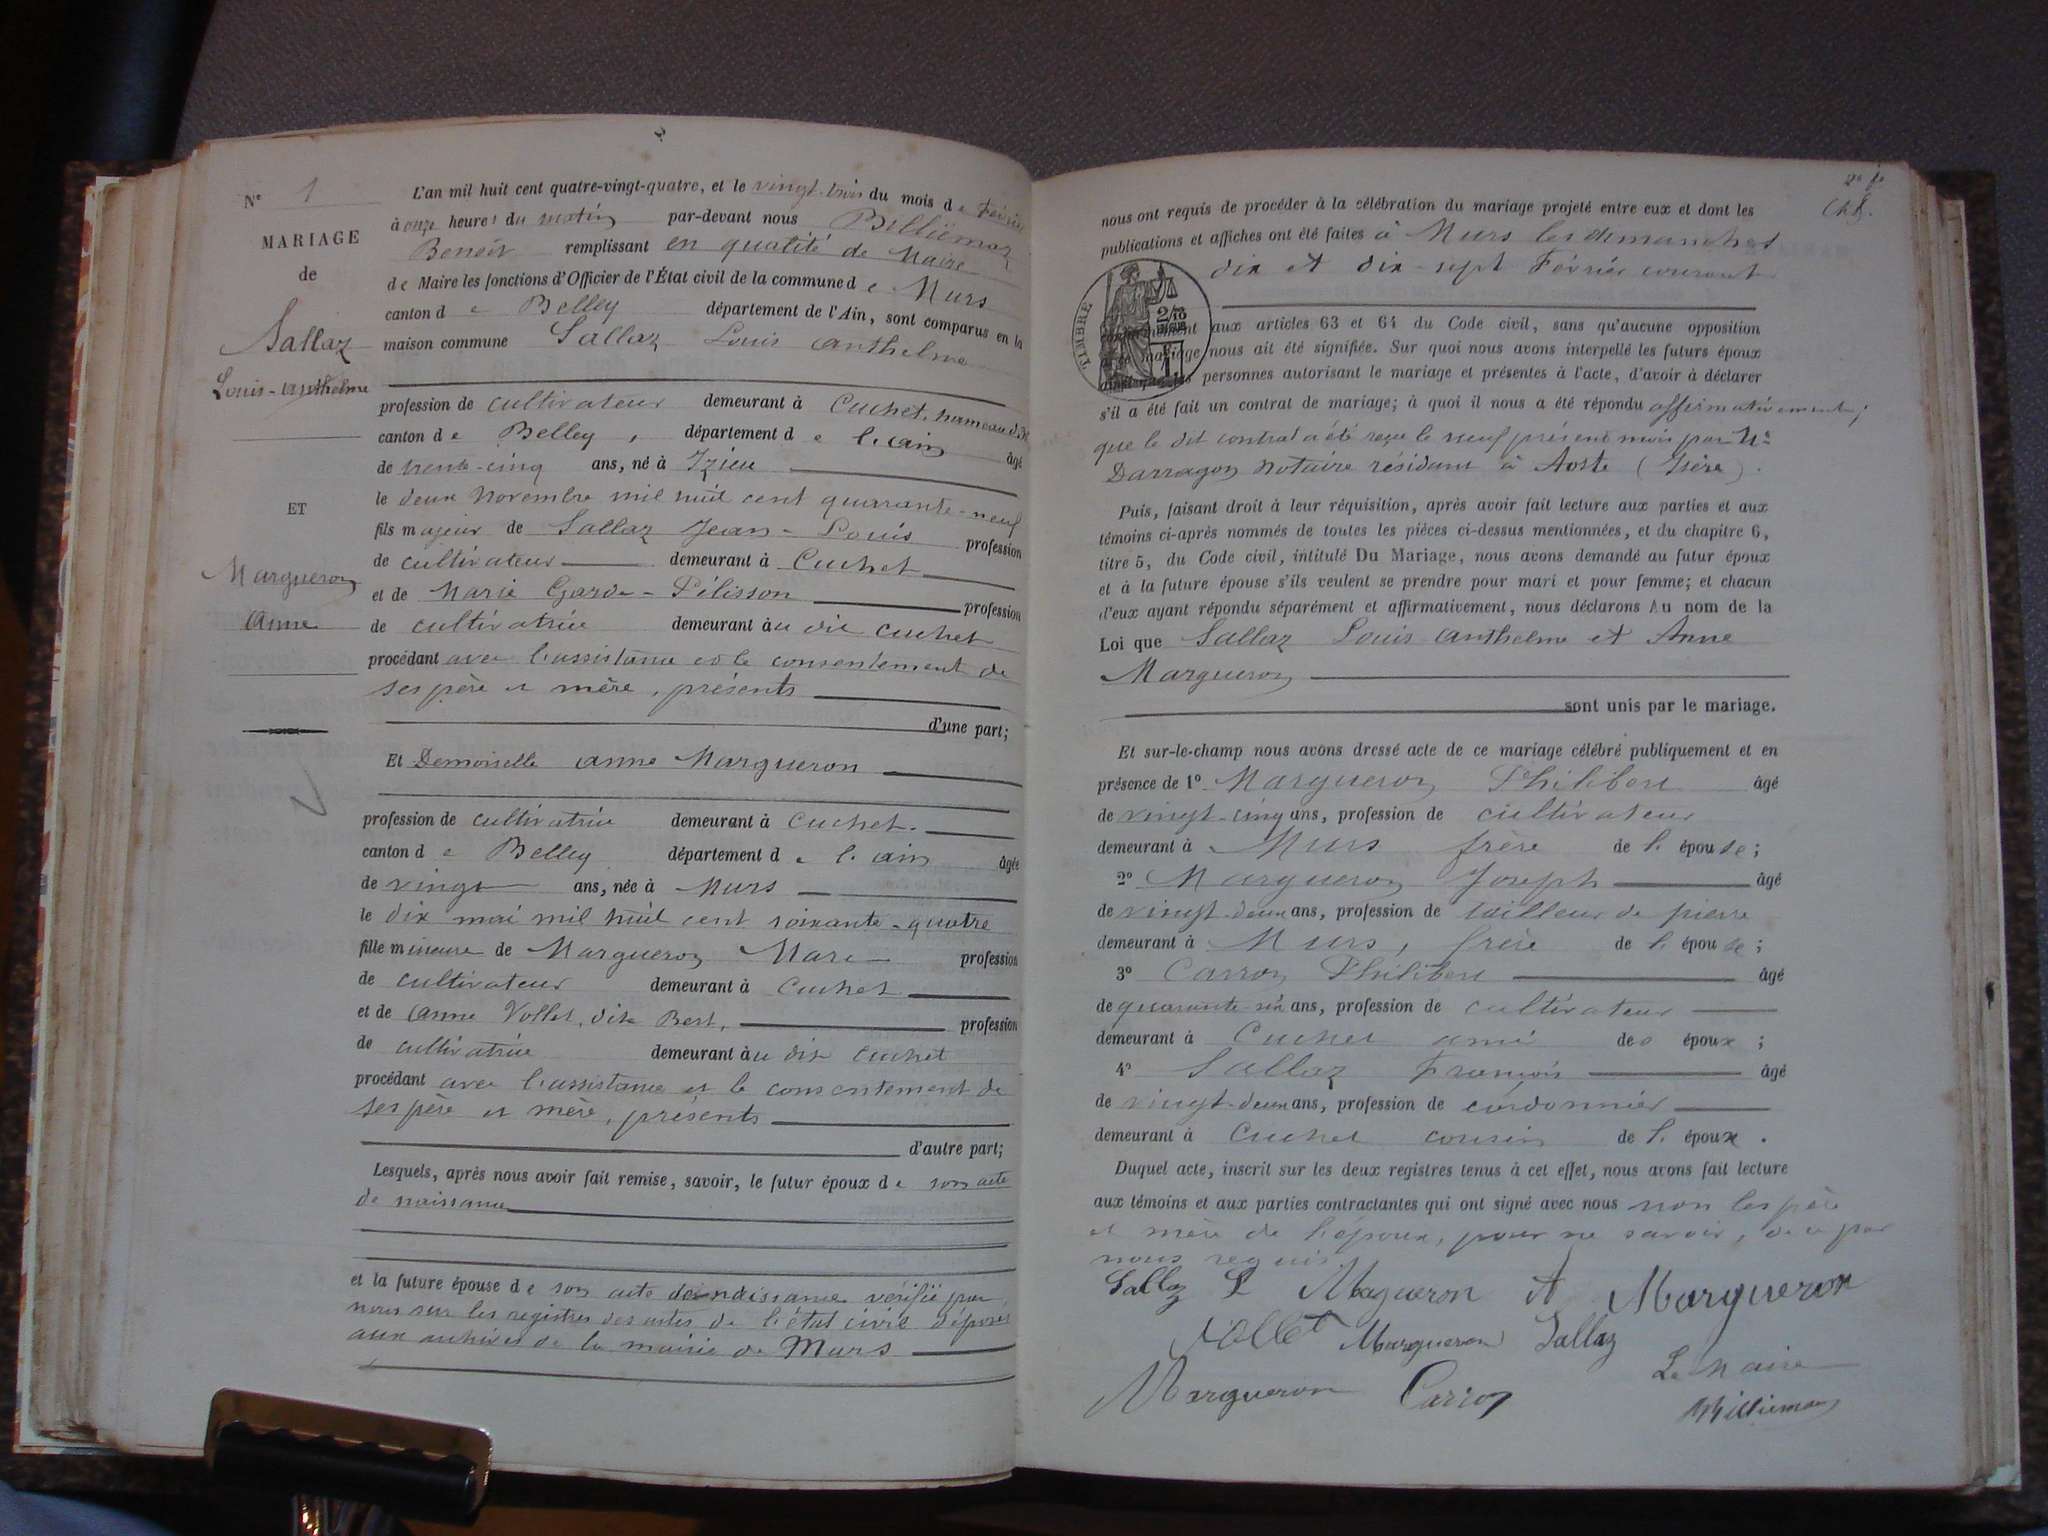 N° 1
MARIAGE
de
Sallaz
Louis-Anthelme
ET
Margueron
Anne
L'an mil huit cent quatre-vingt-quatre, et le vingt-trois du mois de Février
à onze heures du matin par-devant nous Billiémaz
Benoît remplissant en qualité de Maire
de Maire les fonctions d'Officier de l'État civil de la commune de Murs
canton de Belley département de l'Ain, sont comparus en la
maison commune Sallaz Louis Anthelme
profession de cultivateur demeurant à Cuchet, hameau de
canton de Belley, département de l'Ain âgé
de trente-cinq ans, né à Izieu
le deux Novembre mil huit cent quarante-neuf
fils majeur de Sallaz Jean-Louis profession
de cultivateur demeurant à Cuchet
et de Marie Garde-Pélisson profession
de cultivatrice demeurant au dit Cuchet
procédant avec l'assistance et le consentement de
ses père et mère, présents
d'une part;
Et Demoiselle Anne Margueron
profession de cultivatrice demeurant à Cuchet.
canton de Belley département de l'Ain âgée
de vingt ans, née à Murs
le dix mai mil huit cent soixante-quatre
fille mineure de Margueron Marc profession
de cultivateur demeurant à Cuchet
et de Anne Vollet, dite Bert, profession
de cultivatrice demeurant au dit Cuchet
procédant avec l'assistance et le consentement de
ses père et mère, présents
d'autre part;
Lesquels, après nous avoir fait remise, savoir, le futur époux de son acte
de naissance
et la future épouse de son acte de naissance vérifié par
nous sur les registres des actes de l'état civil déposés
aux archives de la mairie de Murs
nous ont requis de procéder à la célébration du mariage projeté entre eux et dont les
publications et affiches ont été faites à Murs les dimanches
dix et dix-sept Février courant
TIMBRE
2/10
aux articles 63 et 64 du Code civil, sans qu'aucune opposition
mariage nous ait été signifiée. Sur quoi nous avons interpellé les futurs époux
personnes autorisant le mariage et présentes à l'acte, d'avoir à déclarer
s'il a été fait un contrat de mariage; à quoi il nous a été répondu affirmativement;
que le dit contrat a été reçu le neuf présent mois par Me
Darragon notaire résidant à Aoste (Isère).
Puis, faisant droit à leur réquisition, après avoir fait lecture aux parties et aux
témoins ci-après nommés de toutes les pièces ci-dessus mentionnées, et du chapitre 6,
titre 5, du Code civil, intitulé Du Mariage, nous avons demandé au futur époux
et à la future épouse s'ils veulent se prendre pour mari et pour femme; et chacun
d'eux ayant répondu séparément et affirmativement, nous déclarons Au nom de la
Loi que Sallaz Louis Anthelme et Anne
Margueron
sont unis par le mariage.
Et sur-le-champ nous avons dressé acte de ce mariage célébré publiquement et en
présence de 1° Margueron Philibert âgé
de vingt-cinq ans, profession de cultivateur
demeurant à Murs frère de l'épouse;
2° Margueron Joseph âgé
de vingt-deux ans, profession de tailleur de pierre
demeurant à Murs, frère de l'épouse;
3° Carron Philibert âgé
de quarante-six ans, profession de cultivateur
demeurant à Cuchet ami des époux;
4° Sallaz François âgé
de vingt-deux ans, profession de cordonnier
demeurant à Cuchet cousin de l'époux.
Duquel acte, inscrit sur les deux registres tenus à cet effet, nous avons fait lecture
aux témoins et aux parties contractantes qui ont signé avec nous non les père
et mère de l'époux, pour ne savoir, de ce par
nous requis
Sallaz L Margueron A Margueron
Vollet Margueron Sallaz
Margueron Carron
Le Maire
Billiémaz